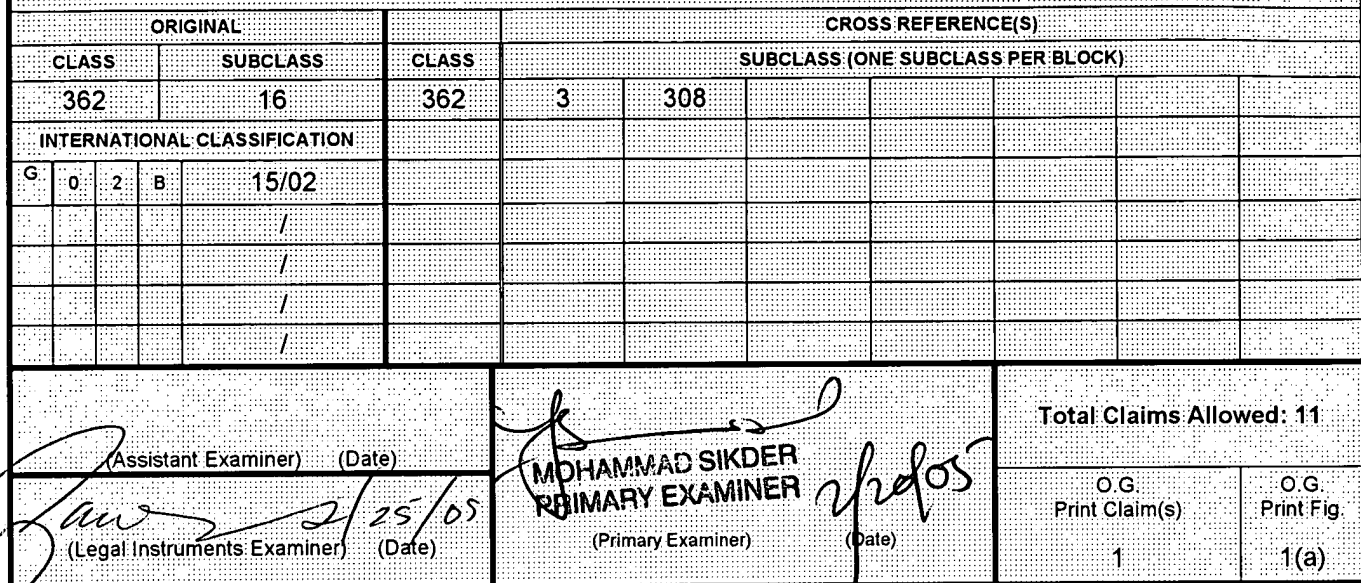 ORIGINAL CROSS REFERENCE(S)
CLASS SUBCLASS CLASS SUBCLASS (ONE SUBCLASS PER BLOCK)
362 16 362 3 308
INTERNATIONAL CLASSIFICATION
G 0 2 B 15/02
/
/
/
/
(Assistant Examiner) (Date)
2/25/05
(Legal Instruments Examiner) (Date)
MOHAMMAD SIKDER
PRIMARY EXAMINER
(Primary Examiner) (Date)
Total Claims Allowed: 11
O.G. Print Claim(s)
1
O.G. Print Fig.
1(a)